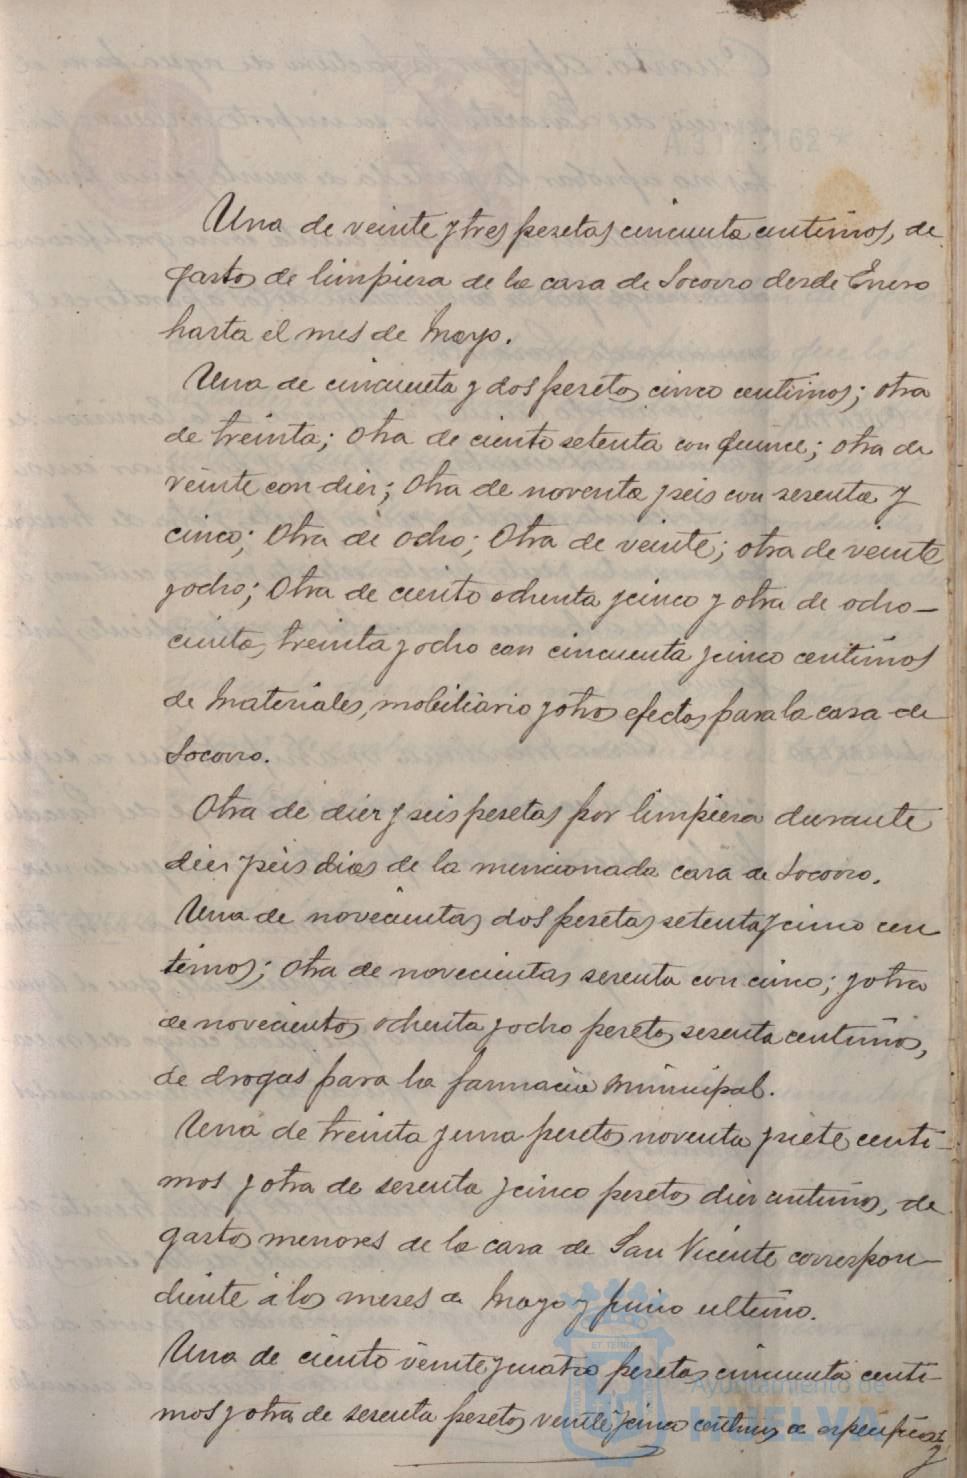 Una de veinte y tres pesetas cincuenta centimos, de
gastos de limpieza de la casa de Socorro desde Enero
hasta el mes de Mayo.
Una de cincuenta y dos pesetas cinco centimos; otra
de treinta; otra de ciento setenta con quince; otra de
veinte con diez; Otra de noventa y seis con sesenta y
cinco; Otra de ocho; Otra de veinte; otra de veinte
y ocho; Otra de ciento ochenta y cinco y otra de ocho-
cientas treinta y ocho con cincuenta y cinco centimos
de Materiales, mobiliario y otros efectos para la casa de
Socorro.
Otra de diez y seis pesetas por limpieza durante
diez y seis dias de la mencionada casa de Socorro.
Una de novecientas dos pesetas setenta y cinco cen
timos; Otra de novecientas sesenta con cinco; y otra
de novecientas ochenta y ocho pesetas sesenta centimos,
de drogas para la farmacia Municipal.
Una de treinta y una pesetas noventa y siete centi-
mos y otra de sesenta y cinco pesetas diez centimos, de
gastos menores de la casa de San Vicente correspon-
diente á los meses de Mayo y Junio ultimo.
Una de ciento veinte y cuatro pesetas cincuenta centi-
mos y otra de sesenta pesetas veinte y cinco centimos de especificos
y
Ayuntamiento de
HUELVA